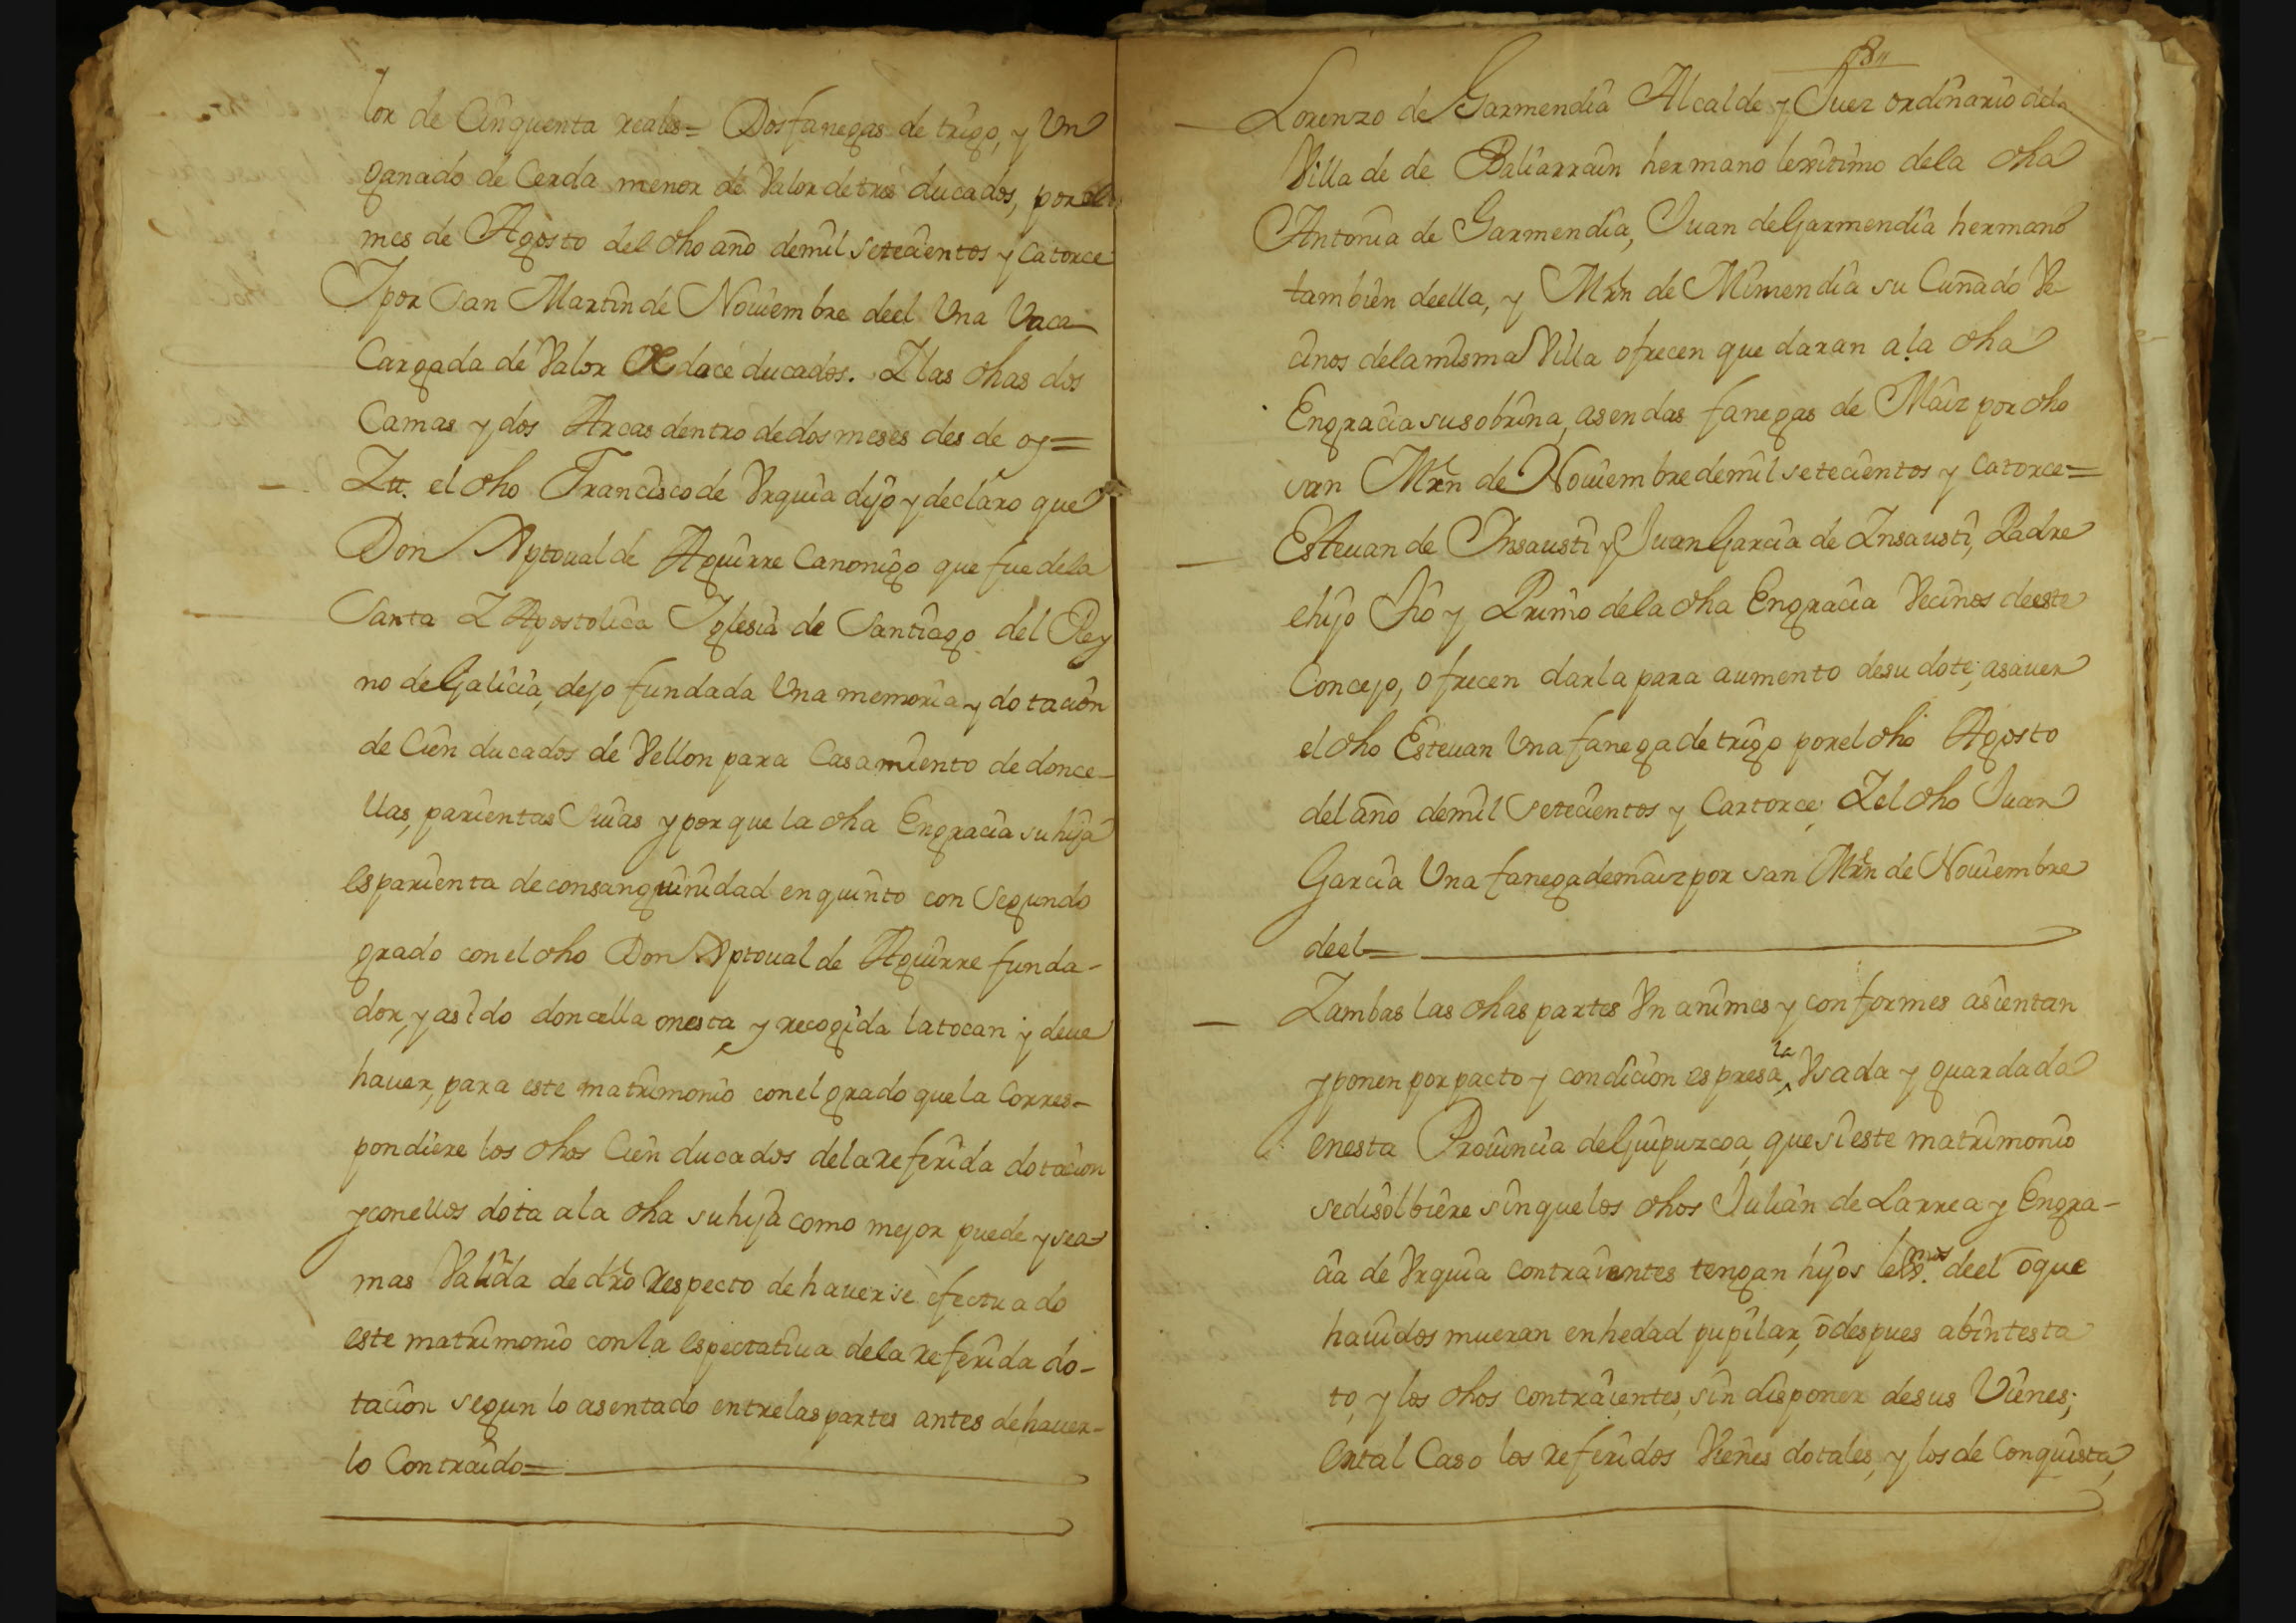 lor de Cinquenta reales= Dos fanegas de trigo, y Un
ganado de Cerda menor de Valor de tres ducados, por el
mes de Agosto del dho año de mil setecientos y catorce
Y por San Martin de Nouiembre deel Una Vaca
Cargada de Valor De doce ducados. Y las dhas dos
Camas y dos Arcas dentro de dos meses desde oy=
Ytt. el dho Francisco de Vrquia dijo y declaro que
Don Xptoual de Aguirre Canonigo que fue dela
Santa Y Apostolica Yglesia de Santiago del Rey
no de Galicia, dejo fundada Una memoria y dotacion
de Cien ducados de Vellon para Casamiento de donce-
llas, parientas Suias y por que la dha Engracia su hija
es parienta de consanguinidad en quinto con Segundo
grado con el dho Don Xptoual de Aguirre funda-
dor, y a sido doncella onesta y recogida la tocan y deue
hauer, para este matrimonio con el grado que la Corres-
pondiere los dhos Cien ducados dela referida dotacion
y con ellos dota a la dha su hija como mejor puede y sea
mas Valida de dro Respecto de hauerse efectuado
este matrimonio con la espectatiua dela referida do-
tacion segun lo asentado entre las partes antes de hauer-
lo Contraido=
8
Lorenzo de Garmendia Alcalde y Juez ordinario dela
Villa de de Baliarrain hermano lexitimo dela dha
Antonia de Garmendia, Juan de Garmendia hermano
tambien deella, y Mrn de Mimendia su Cuñado Ve-
cinos dela misma Villa ofrecen que daran a la dha
Engracia su sobrina, asendas fanegas de Maiz por dho
san Mrn de Nouiembre de mil setecientos y catorce=
Esteuan de Ynsausti y Juan Garcia de Ynsausti, Padre
e hijo tio y Primo dela dha Engracia Vecinos deeste
Concejo, ofrecen darla para aumento de su dote; asauer
el dho Esteuan Una fanega de trigo por el dho Agosto
del año de mil Setecientos y Cartorce; Y el dho Juan
Garcia Una fanega de maiz por san Mrn de Nouiembre
deel=
Y ambas las dhas partes Vn animes y conformes asientan
y ponen por pacto y condicion espresa la Vsada y guardada
en esta Prouincia de Guipuzcoa, que si este matrimonio
se disolbiere sin que los dhos Julian de Larrea y Engra-
cia de Vrquia contraientes tengan hijos lexmos. deel o que
hauidos mueran en hedad pupilar, o despues abintesta
to, y los dhos contraientes, sin disponer de sus Vienes;
en tal Caso los referidos Vienes dotales, y los de Conquista,